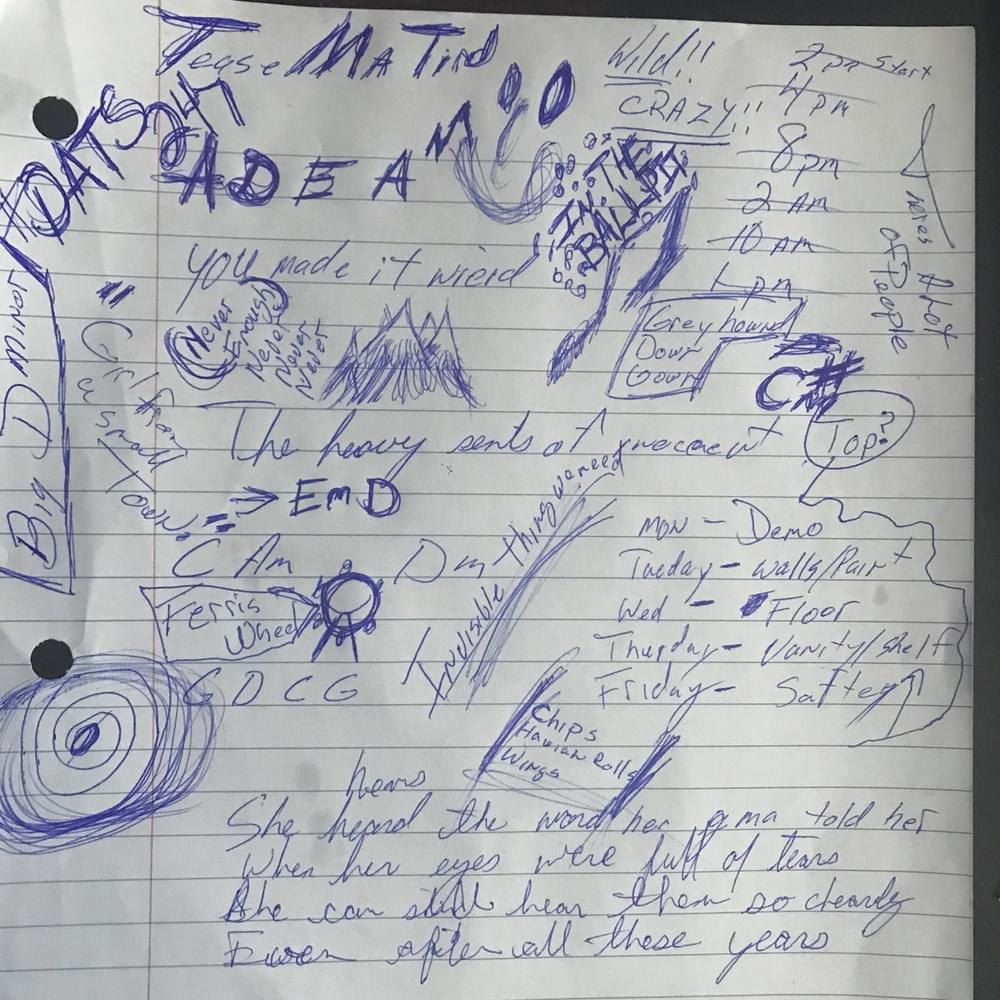 Tease Ma
#DATS 247
A D E A M
Wild!!
CRAZY!!
2 pm start
4 pm
8 pm
2 AM
10 AM
1 pm
of People
IN THE
BALLPIT
you made it wierd
Never
Enough
Never
Never
Never
Greyhound
Down
Gown
C#
Top?
Big D minor
" Girl from
a small
Town "
The heavy sents of
=> Em D
C Am Dm
Invisible thing we need
Ferris
Wheel
G D C G
Mon - Demo
Tueday - walls/Paint
Wed - Floor
Thursday - Vanity/shelf
Friday - Saftey
Chips
Hawian Rolls
Wings
hears
She heard the word her gma told her
When her eyes were full of tears
She can still hear them so clearly
Even after all these years